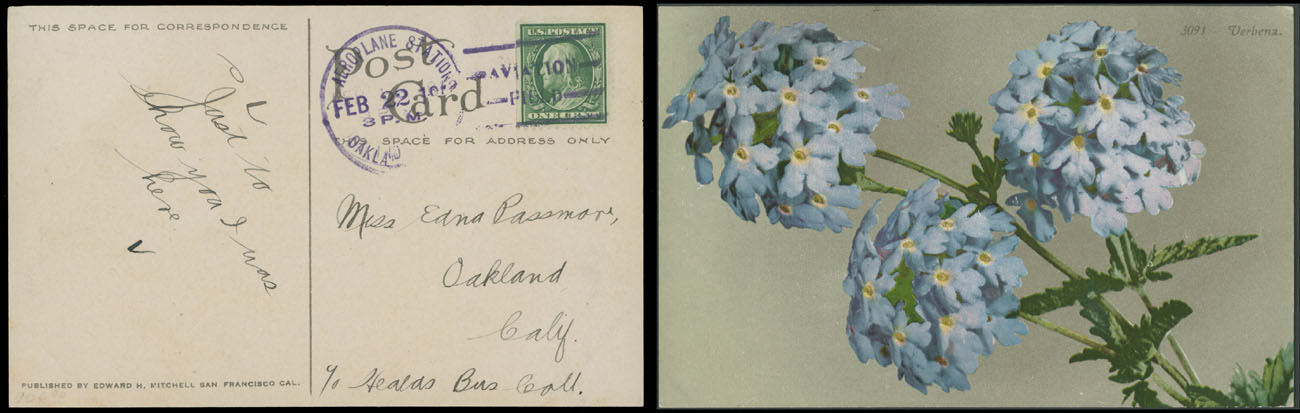 THIS SPACE FOR CORRESPONDENCE
Just to
show you I was
here
PUBLISHED BY EDWARD H. MITCHELL SAN FRANCISCO CAL.
Post
Card
SPACE FOR ADDRESS ONLY
AEROPLANE STATION
FEB 22
3 P.M.
OAKLAND
AVIATION
FIELD
U.S. POSTAGE
ONE CENT
Miss Edna Passmore,
Oakland
Calif.
% Healds Bus Coll.
3091 - Verbena.